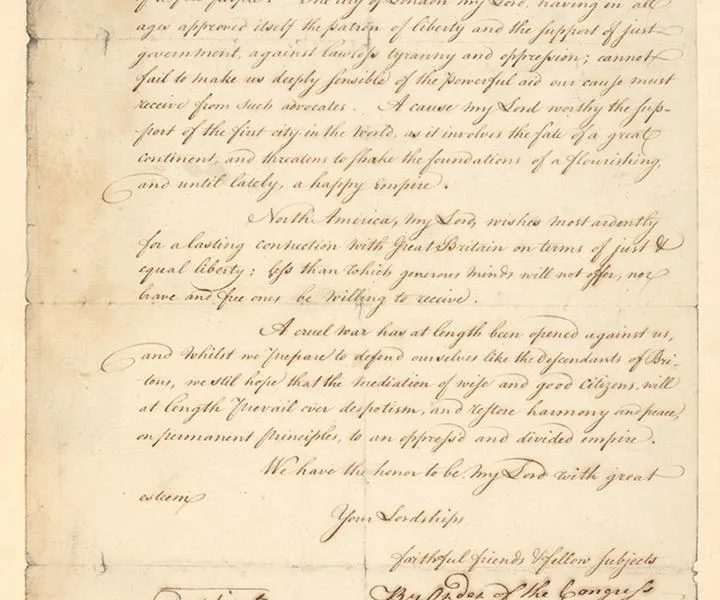 of a free people. The city of London my Lord, having in all
ages approved itself the patron of liberty and the support of just
government, against lawless tyranny and oppression; cannot
fail to make us deeply sensible of the powerful aid our cause must
receive from such advocates. A cause my Lord worthy the sup-
port of the first city in the World, as it involves the fate of a great
continent, and threatens to shake the foundations of a flourishing,
and until lately, a happy Empire.
North America, my Lord, wishes most ardently
for a lasting connection with Great Britain on terms of just &
equal liberty; less than which generous minds will not offer, nor
brave and free ones be willing to receive.
A cruel war has at length been opened against us,
and whilst we prepare to defend ourselves like the descendants of Bri-
tons, we still hope that the mediation of wise and good Citizens, will
at length prevail over despotism, and restore harmony and peace,
on permanent principles, to an oppress'd and divided empire.
We have the honor to be, my Lord with great
esteem
Your Lordships
faithful friends & fellow subjects
By Order of the Congress